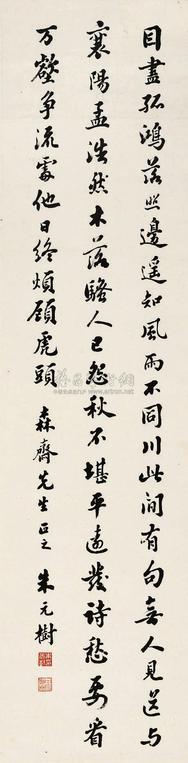 目盡孤鴻落照邊遥知風雨不同川此間有句無人見送与
襄陽孟浩然木落騷人已怨秋不堪平遠發詩愁要看
万壑争流處他日終煩顧虎頭 森齋先生正之 朱元樹